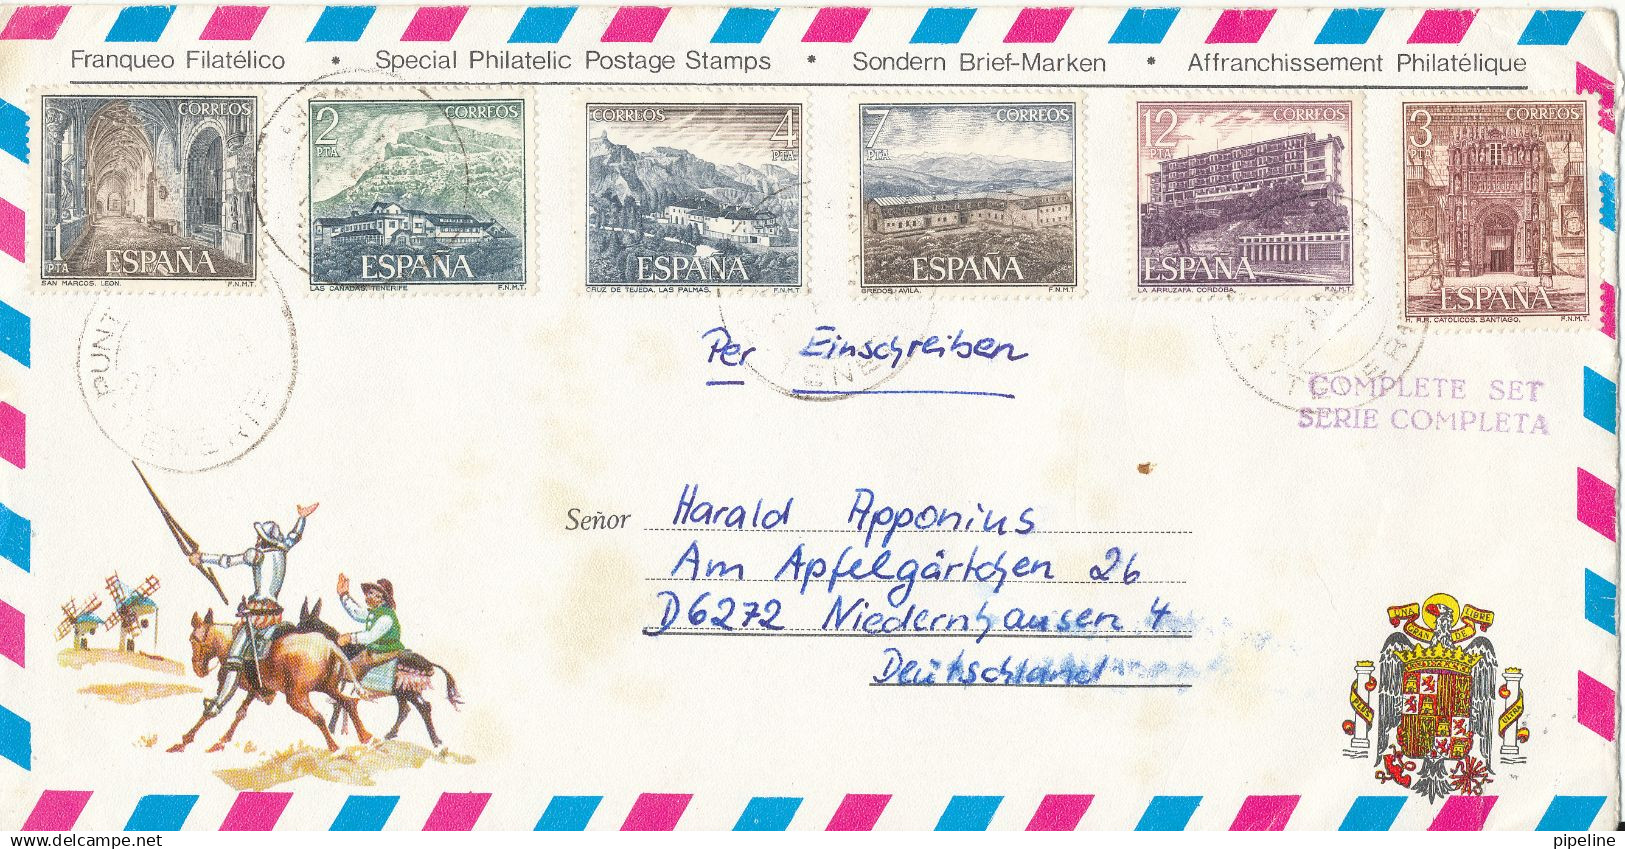 Franqueo Filatélico • Special Philatelic Postage Stamps • Sondern Brief-Marken • Affranchissement Philatélique
CORREOS
1 PTA ESPAÑA
SAN MARCOS. LEON. F.N.M.T.
2 PTA CORREOS
ESPAÑA
LAS CAÑADAS, TENERIFE F.N.M.T.
CORREOS 4 PTA
ESPAÑA
CRUZ DE TEJEDA, LAS PALMAS. F.N.M.T.
7 PTA CORREOS
ESPAÑA
GREDOS/AVILA. F.N.M.T.
12 PTA CORREOS
ESPAÑA
LA ARRUZAFA. CORDOBA. F.N.M.T.
3 PTA CORREOS
ESPAÑA
H. R.R. CATOLICOS. SANTIAGO. F.N.M.T.
Per Einschreiben
COMPLETE SET
SERIE COMPLETA
Señor Harald Apponius
Am Apfelgärtchen 26
D6272 Niedernhausen 4
Deutschland
UNA GRAN LIBRE DE
PLUS ULTRA
delcampe.net
pipeline